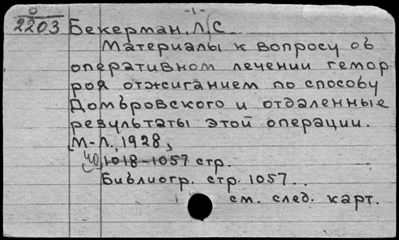 -1-
2203 Бекерман, Л. С.
Материалы к вопросу об
оперативном лечении гемор-
роя отжиганием по способу
Домбровского и отдаленные
результаты этой операции.
М-Л., 1928,
40, 1018-1057 стр.
Библиогр. стр. 1057..
см. след. карт.